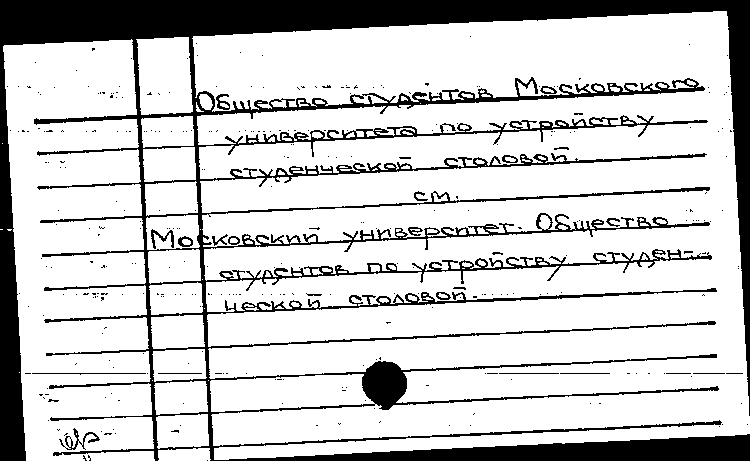 Общество студентов Московского
университета по устройству
студенческой столовой.
см.
Московский университет. Общество
студентов по устройству студен-
ческой столовой.